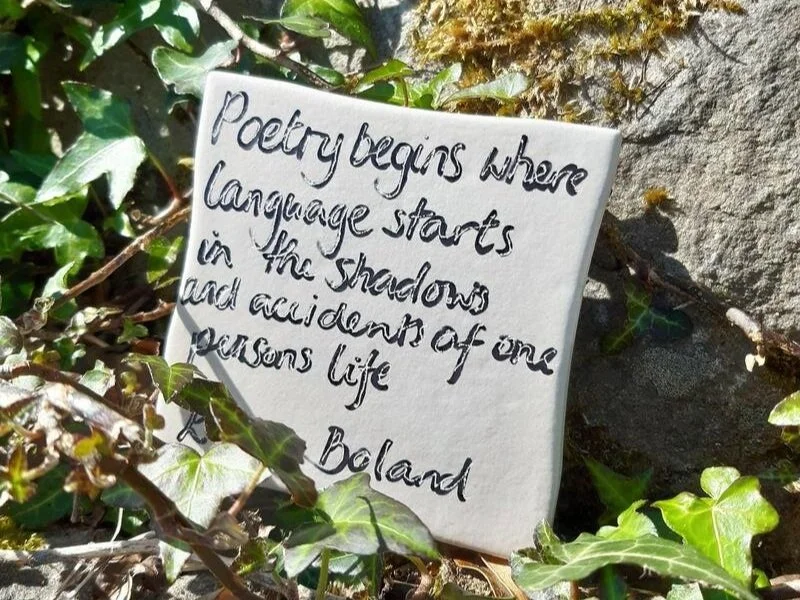 Poetry begins where
language starts
in the shadows
and accidents of one
persons life
Boland